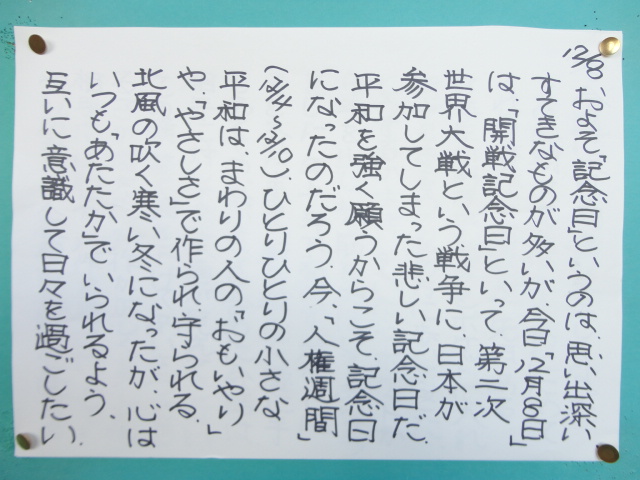 12/8、およそ「記念日」というのは、思い出深い
すてきなものが多いが、今日「12月8日」
は、「開戦記念日」といって、第二次
世界大戦という戦争に、日本が
参加してしまった悲しい記念日だ。
平和を強く願うからこそ、記念日
になったのだろう。今、「人権週間」
(12/4〜12/10)、ひとりひとりの小さな
平和は、まわりの人の「おもいやり」
や、「やさしさ」で作られ、守られる。
北風の吹く寒い冬になったが、心は
いつも「あたたか」でいられるよう、
互いに意識して日々を過ごしたい。